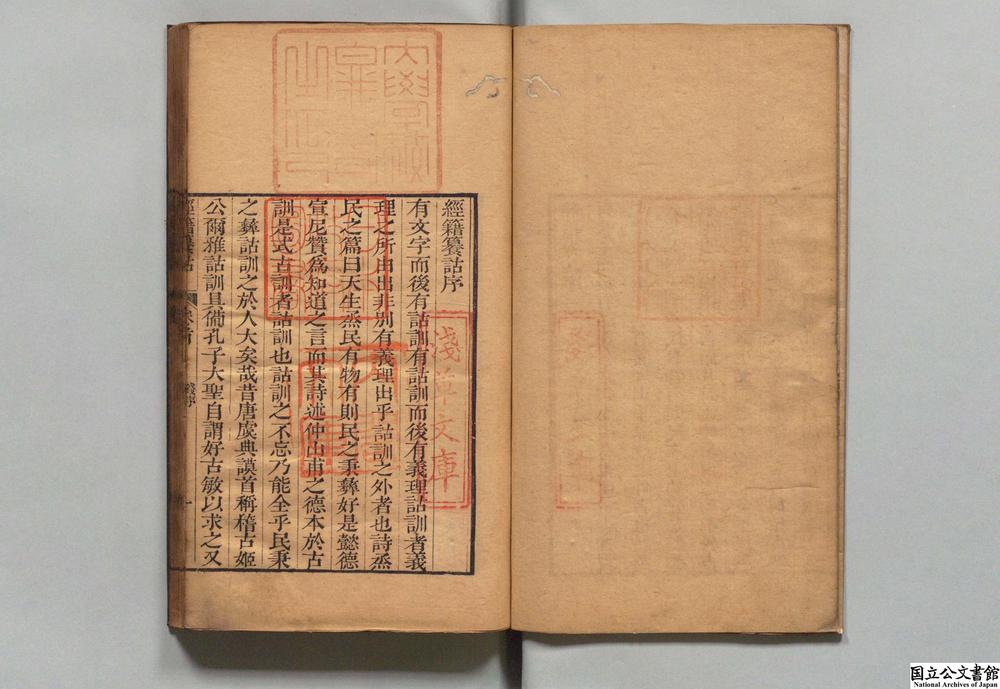 經籍籑詁序
有文字而後有詁訓有詁訓而後有義理詁訓者義
理之所由出非別有義理出乎詁訓之外者也詩烝
民之篇曰天生烝民有物有則民之秉彝好是懿德
宣尼贊爲知道之言而其詩述仲山甫之德本於古
訓是式古訓者詁訓也詁訓之不忘乃能全乎民秉
之彝詁訓之於人大矣哉昔唐虞典謨首稱稽古姬
公爾雅詁訓具備孔子大聖自謂好古敏以求之又
經籍籑詁
錢序
一
淺草文庫
国立公文書館
National Archives of Japan